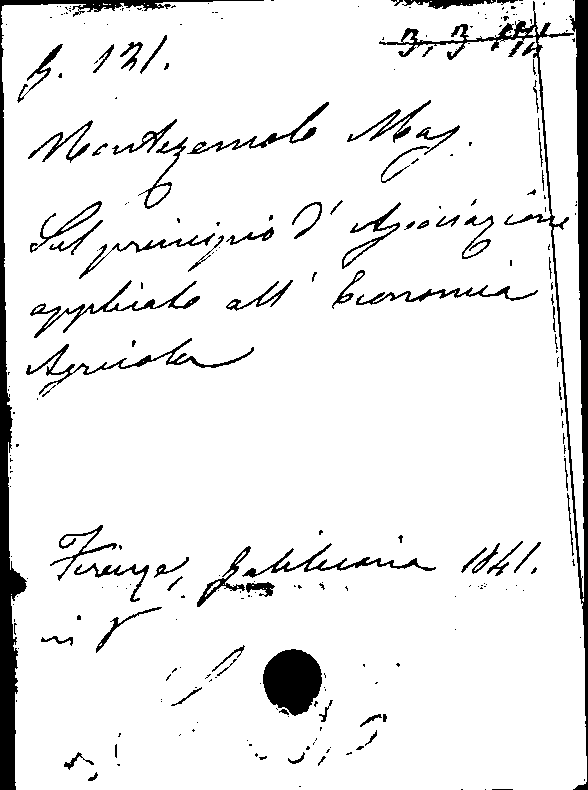 B. 121.
Montezemolo Mas.
Sul principio d' Associazione
applicato all' Economia
Agricola
Firenze, Galileiana 1841.
in 8